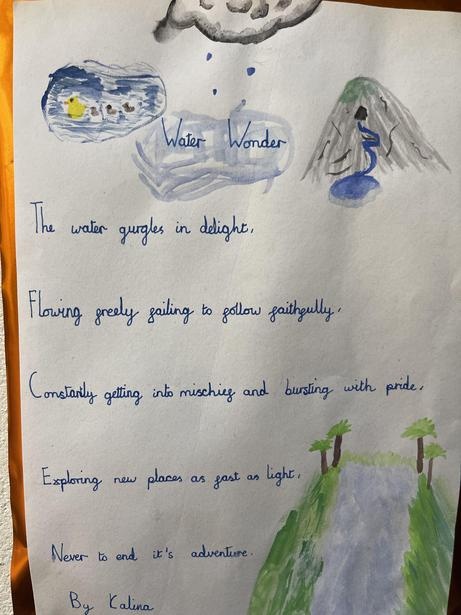 Water Wonder
The water gurgles in delight,
Flowing freely failing to follow faithfully,
Constantly getting into mischief and bursting with pride,
Exploring new places as fast as light,
Never to end it's adventure.
By Kalina